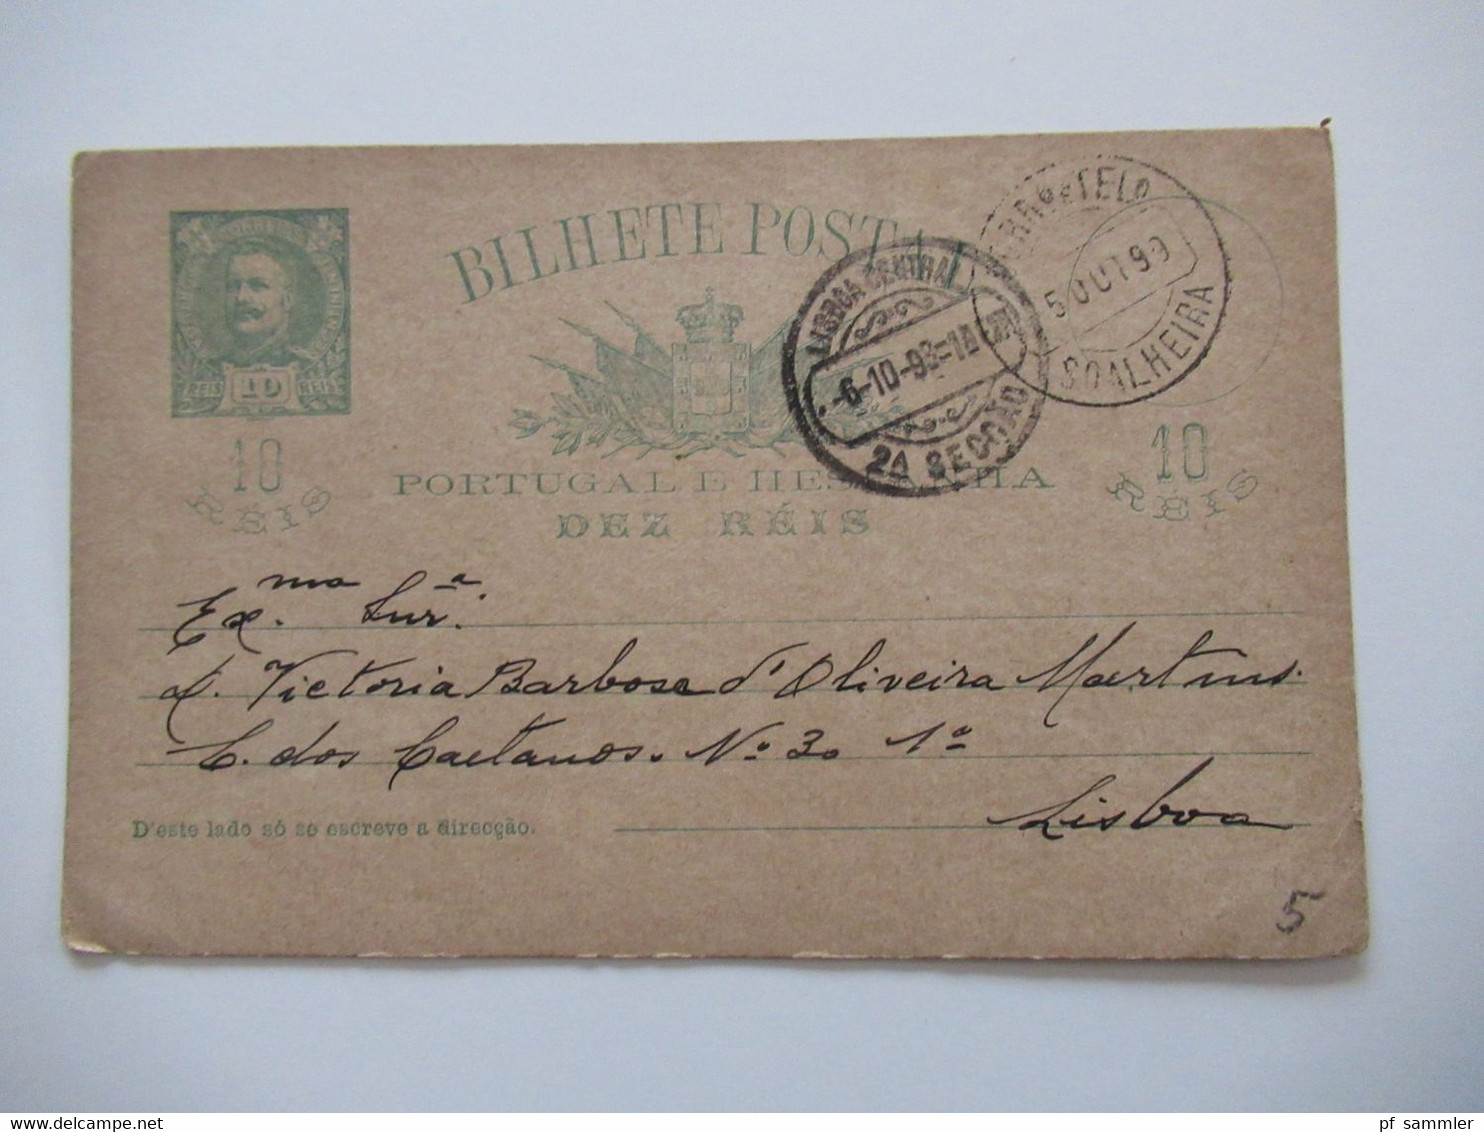 BILHETE POSTAL
CORREIOS
REIS 10 REIS
10
RÉIS
10
RÉIS
PORTUGAL E HESPANHA
DEZ RÉIS
LISBOA CENTRAL
-6-10-93-1A
2A SECÇÃO
5 OUT 93
SOALHEIRA
Ex.ma Snr.ª
D. Victoria Barbosa d'Oliveira Martins.
C. dos Caetanos. Nº 30 1º
Lisboa
D'este lado só se escreve a direcção.
5
pf sammler